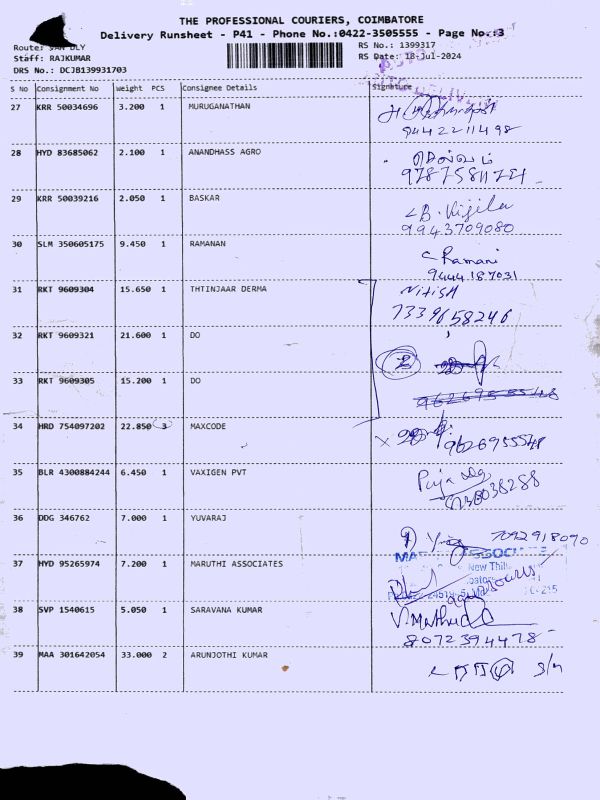 THE PROFESSIONAL COURIERS, COIMBATORE
Delivery Runsheet - P41 - Phone No.:0422-3505555 - Page No.:3
Route: ULY
Staff: RAJKUMAR
DRS No.: DCJB139931703
RS No.: 1399317
RS Date: 18-Jul-2024
S No Consignment No Weight PCS Consignee Details Signature
27 KRR 50034696 3.200 1 MURUGANATHAN
9442211498
28 HYD 83685062 2.100 1 ANANDHASS AGRO
செல்வம்
29 KRR 50039216 2.050 1 BASKAR B. Vijila
9943709080
30 SLM 350605175 9.450 1 RAMANAN C Ramani
9444187031
31 RKT 9609304 15.650 1 THTINJAAR DERMA Nitish
7339658246
32 RKT 9609321 21.600 1 DO
33 RKT 9609305 15.200 1 DO
9626955548
34 HRD 754097202 22.850 3 MAXCODE
9626955548
35 BLR 4300884244 6.450 1 VAXIGEN PVT
Puja
36 DDG 346762 7.000 1 YUVARAJ
7092918090
37 HYD 95265974 7.200 1 MARUTHI ASSOCIATES
New
38 SVP 1540615 5.050 1 SARAVANA KUMAR
8072394478
39 MAA 301642054 33.000 2 ARUNJOTHI KUMAR